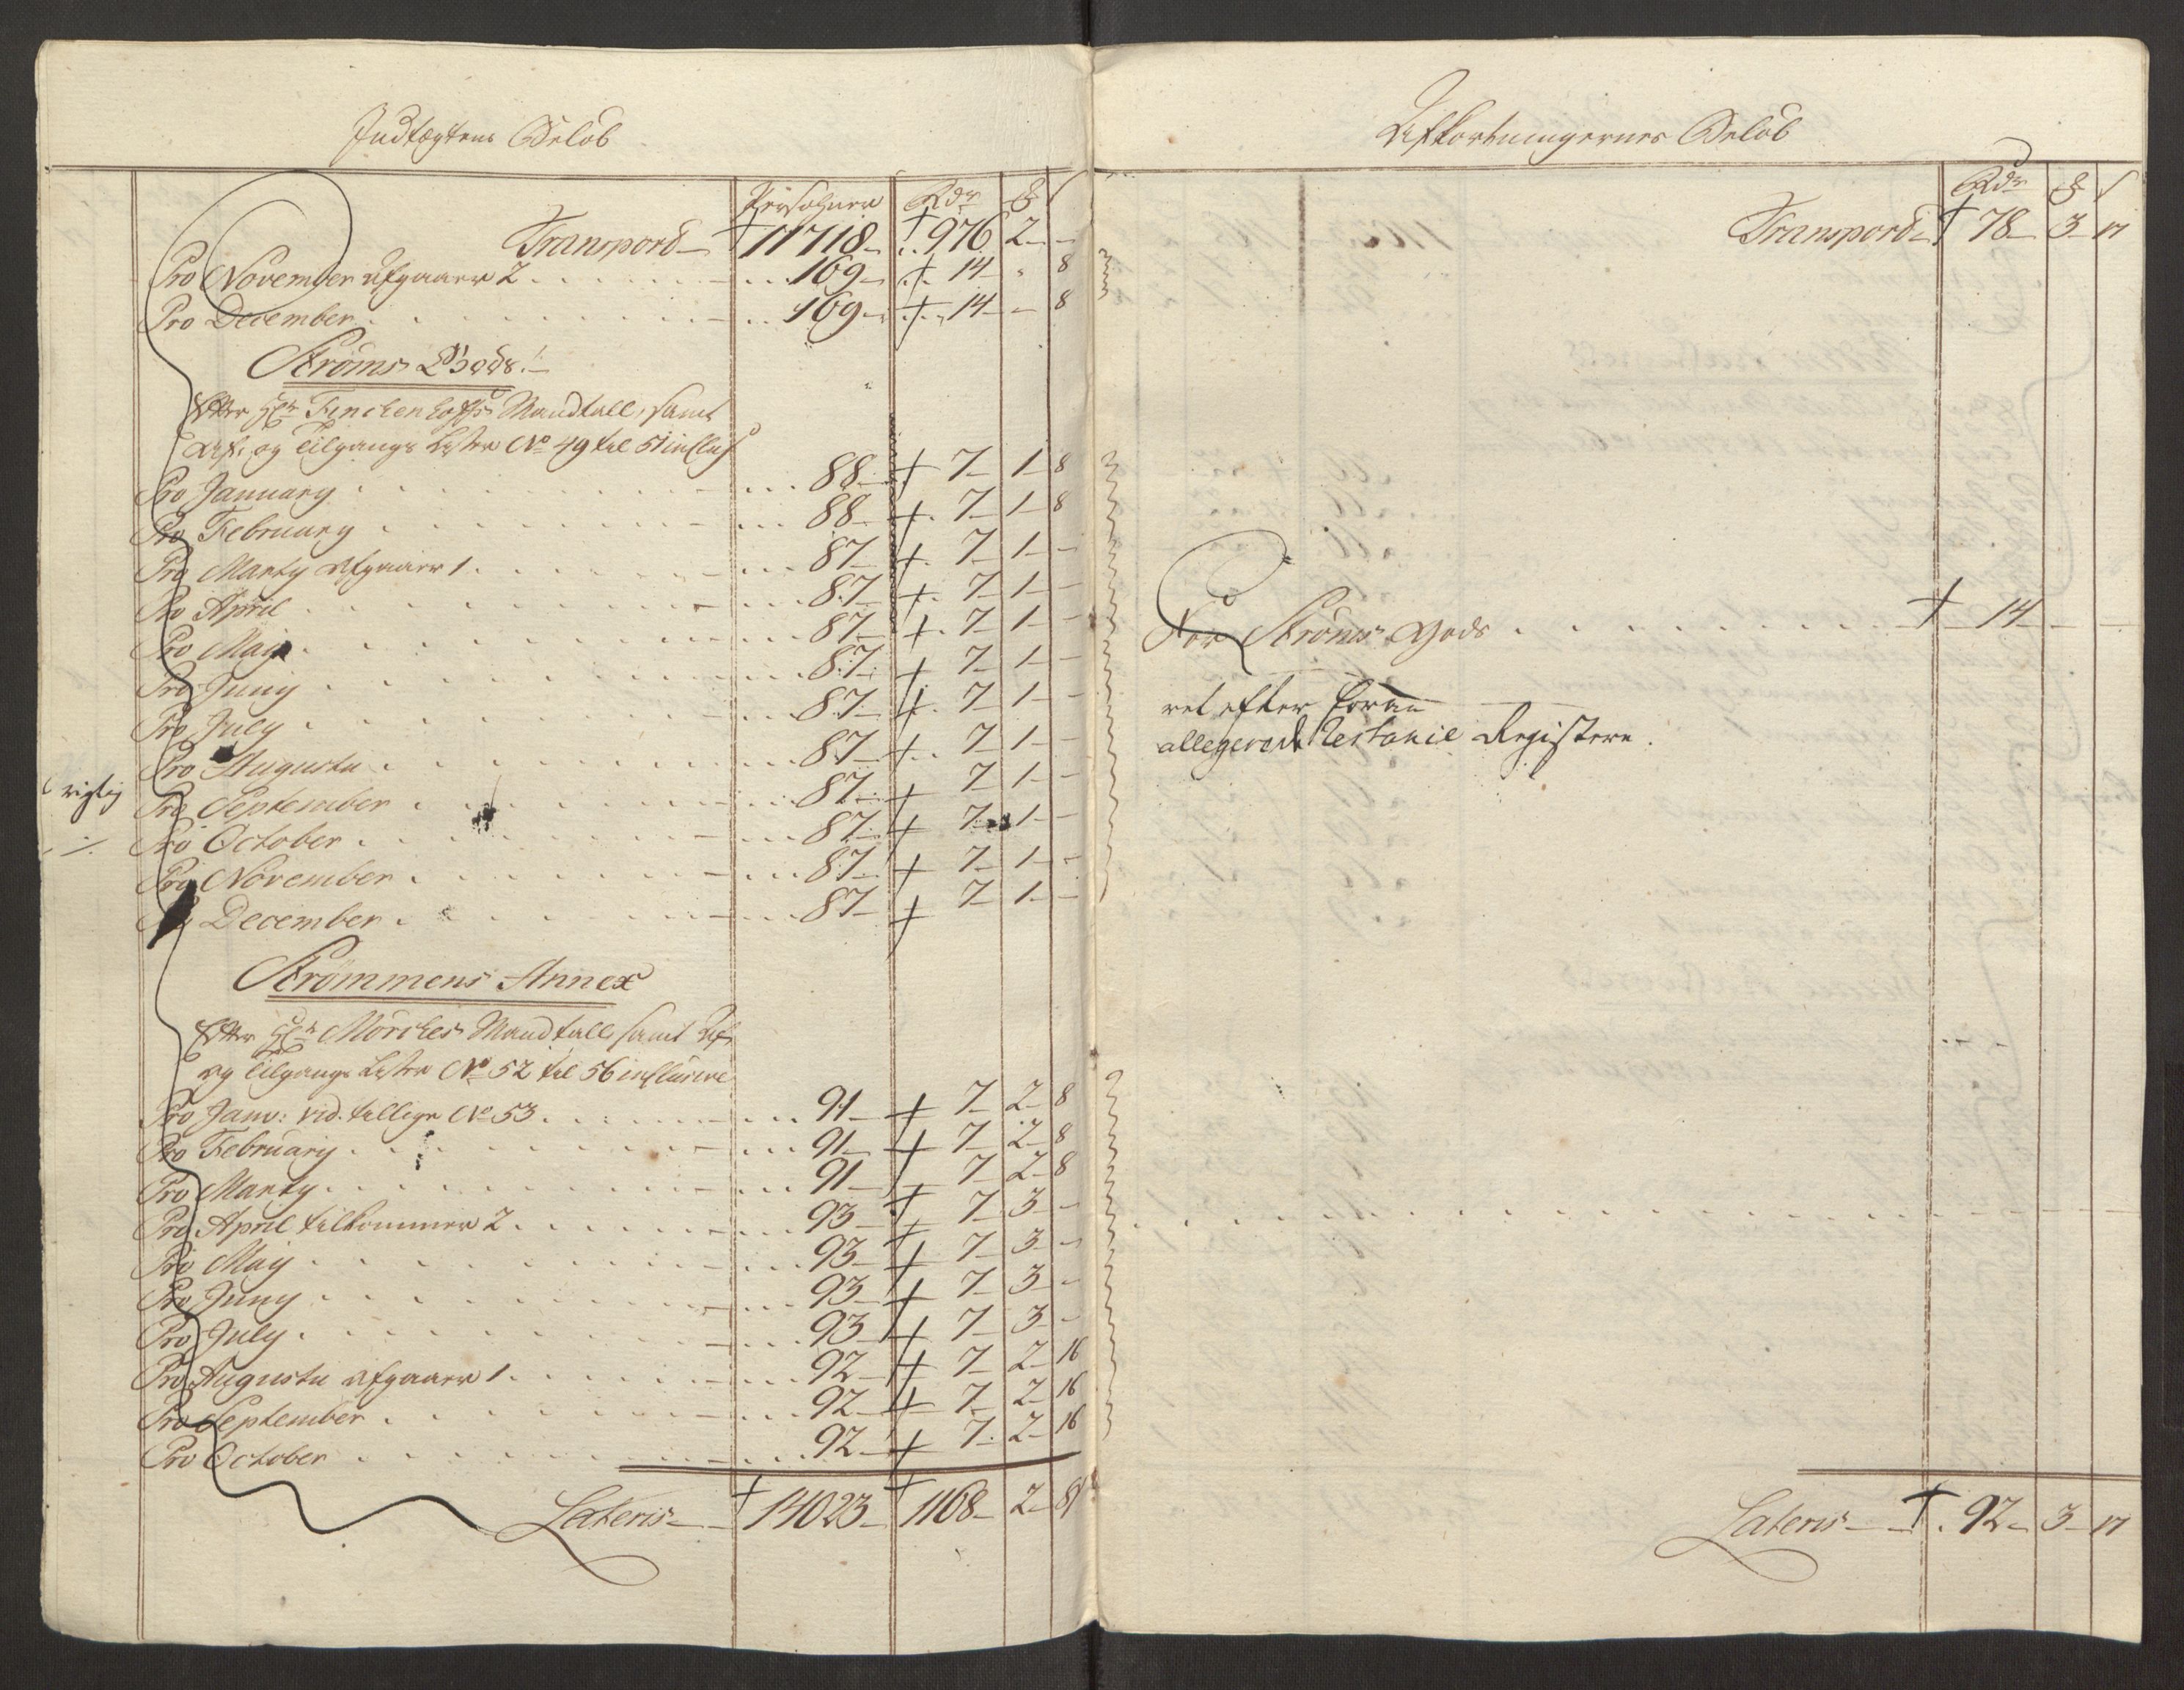 Indtægtens Beløb
Persohner Rdr ß
Transpord 11718 976 2 -
Pro November afgaaer 2 . . . 169 14 - 8
Pro December . . . 169 14 - 8
Strøms Gods
Efter Hr Finckenhoffs Mandtall, samt
Af- og tilgangs Lister No 49 til 51 inclus
Pro January . . . 88 7 1 8
Pro February . . . 88 7 1 8
Pro Marty afgaaer 1 . . . 87 7 1 -
Pro April . . . 87 7 1 -
Pro May . . . 87 7 1 -
Pro Juny . . . 87 7 1 -
Pro July . . . 87 7 1 -
Pro Augusti . . . 87 7 1 -
rigtig
Pro September . . . 87 7 1 -
Pro October . . . 87 7 1 -
Pro November . . . 87 7 1 -
Pro December . . . 87 7 1 -
Strømmens Annex
Efter Hr Mørches Mandtall samt Af
og tilgangs Lister No 52 til 56 inclusive
Pro Janv: vid. tillige No 53 . . . 91 7 2 8
Pro February . . . 91 7 2 8
Pro Marty . . . 91 7 2 8
Pro April tilkommer 2 . . . 93 7 3 -
Pro May . . . 93 7 3 -
Pro Juny . . . 93 7 3 -
Pro July . . . 93 7 3 -
Pro Augusti afgaaer 1 . . . 92 7 2 16
Pro September . . . 92 7 2 16
Pro October . . . 92 7 2 16
Lateris 14023 1168 2 8
Afkortningernes Beløb
Rdr ß
Transpord 78 3 17
For Strøms Gods . . . 14 - -
ret efter
allegerede Restance Registere.
Lateris 92 3 17